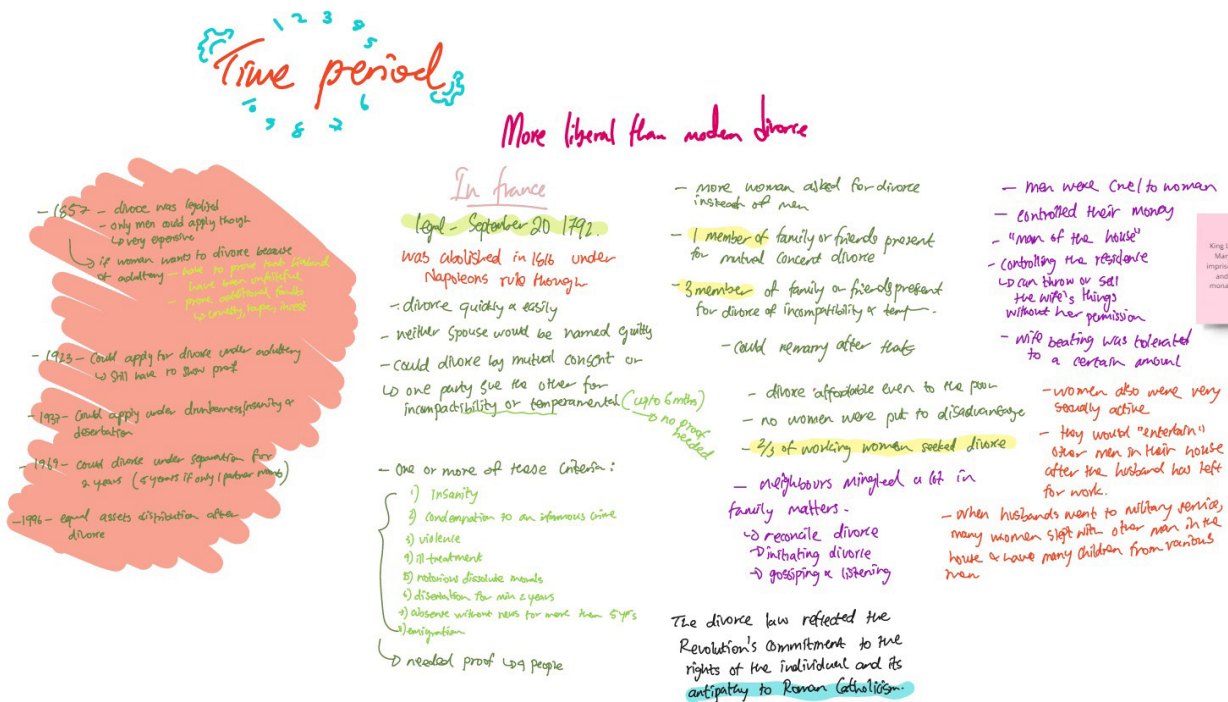 1 2 3 4 5
Time period
10 9 8 7 6
More liberal than modern divorce
- 1857 - divorce was legalised
- only men could apply though
↳ very expensive
↳ if woman wants to divorce because
of adultery - have to prove their husband
have been unfaithful
- prove additional faults
↳ cruelty, rape, incest
- 1923 - Could apply for divorce under adultery
↳ Still have to show proof.
- 1937 - Could apply under drunkenness, insanity &
desertation
- 1969 - could divorce under separation for
2 years (5 years if only 1 partner wants)
- 1996 - equal assets distribution after
divorce
In france
legal - September 20 1792.
was abolished in 1816 under
Napoleons rule though
- divorce quickly & easily
- neither spouse would be named guilty
- could divorce by mutual consent or
↳ one party sue the other for
incompatibility or temperamental (up to 6 mths)
→ no proof
needed
- One or more of these criteria:
1) Insanity
2) condemnation to an infamous crime
3) violence
4) ill-treatment
5) notorious dissolute morals
6) disertation for min 2 years
7) absense without news for more than 5 yrs
8) emigration
↳ needed proof ↳ 9 people
- more woman asked for divorce
instead of men
- 1 member of family or friends present
for mutual concent divorce
- 3 member of family or friends present
for divorce of incompatibility &
- could remarry after that
- divorce affordable even to the poor
- no women were put to disadvantage
- 2/3 of working women seeked divorce
- neighbours mingled a lot in
family matters.
↳ reconcile divorce
→ initiating divorce
→ gossiping & listening
The divorce law reflected the
Revolution's commitment to the
rights of the individual and its
antipathy to Roman Catholicism.
- men were cruel to woman
- controlled their money
- "man of the house"
- controlling the residence
↳ can throw or sell
the wife's things
without her permission
- wife beating was tolerated
to a certain amount
- women also were very
sexually active
- they would "entertain"
other men in their house
after the husband has left
for work.
- when husbands went to military service,
many women slept with other man in the
house & have many children from various
men
King
Mar
impris
and
mona